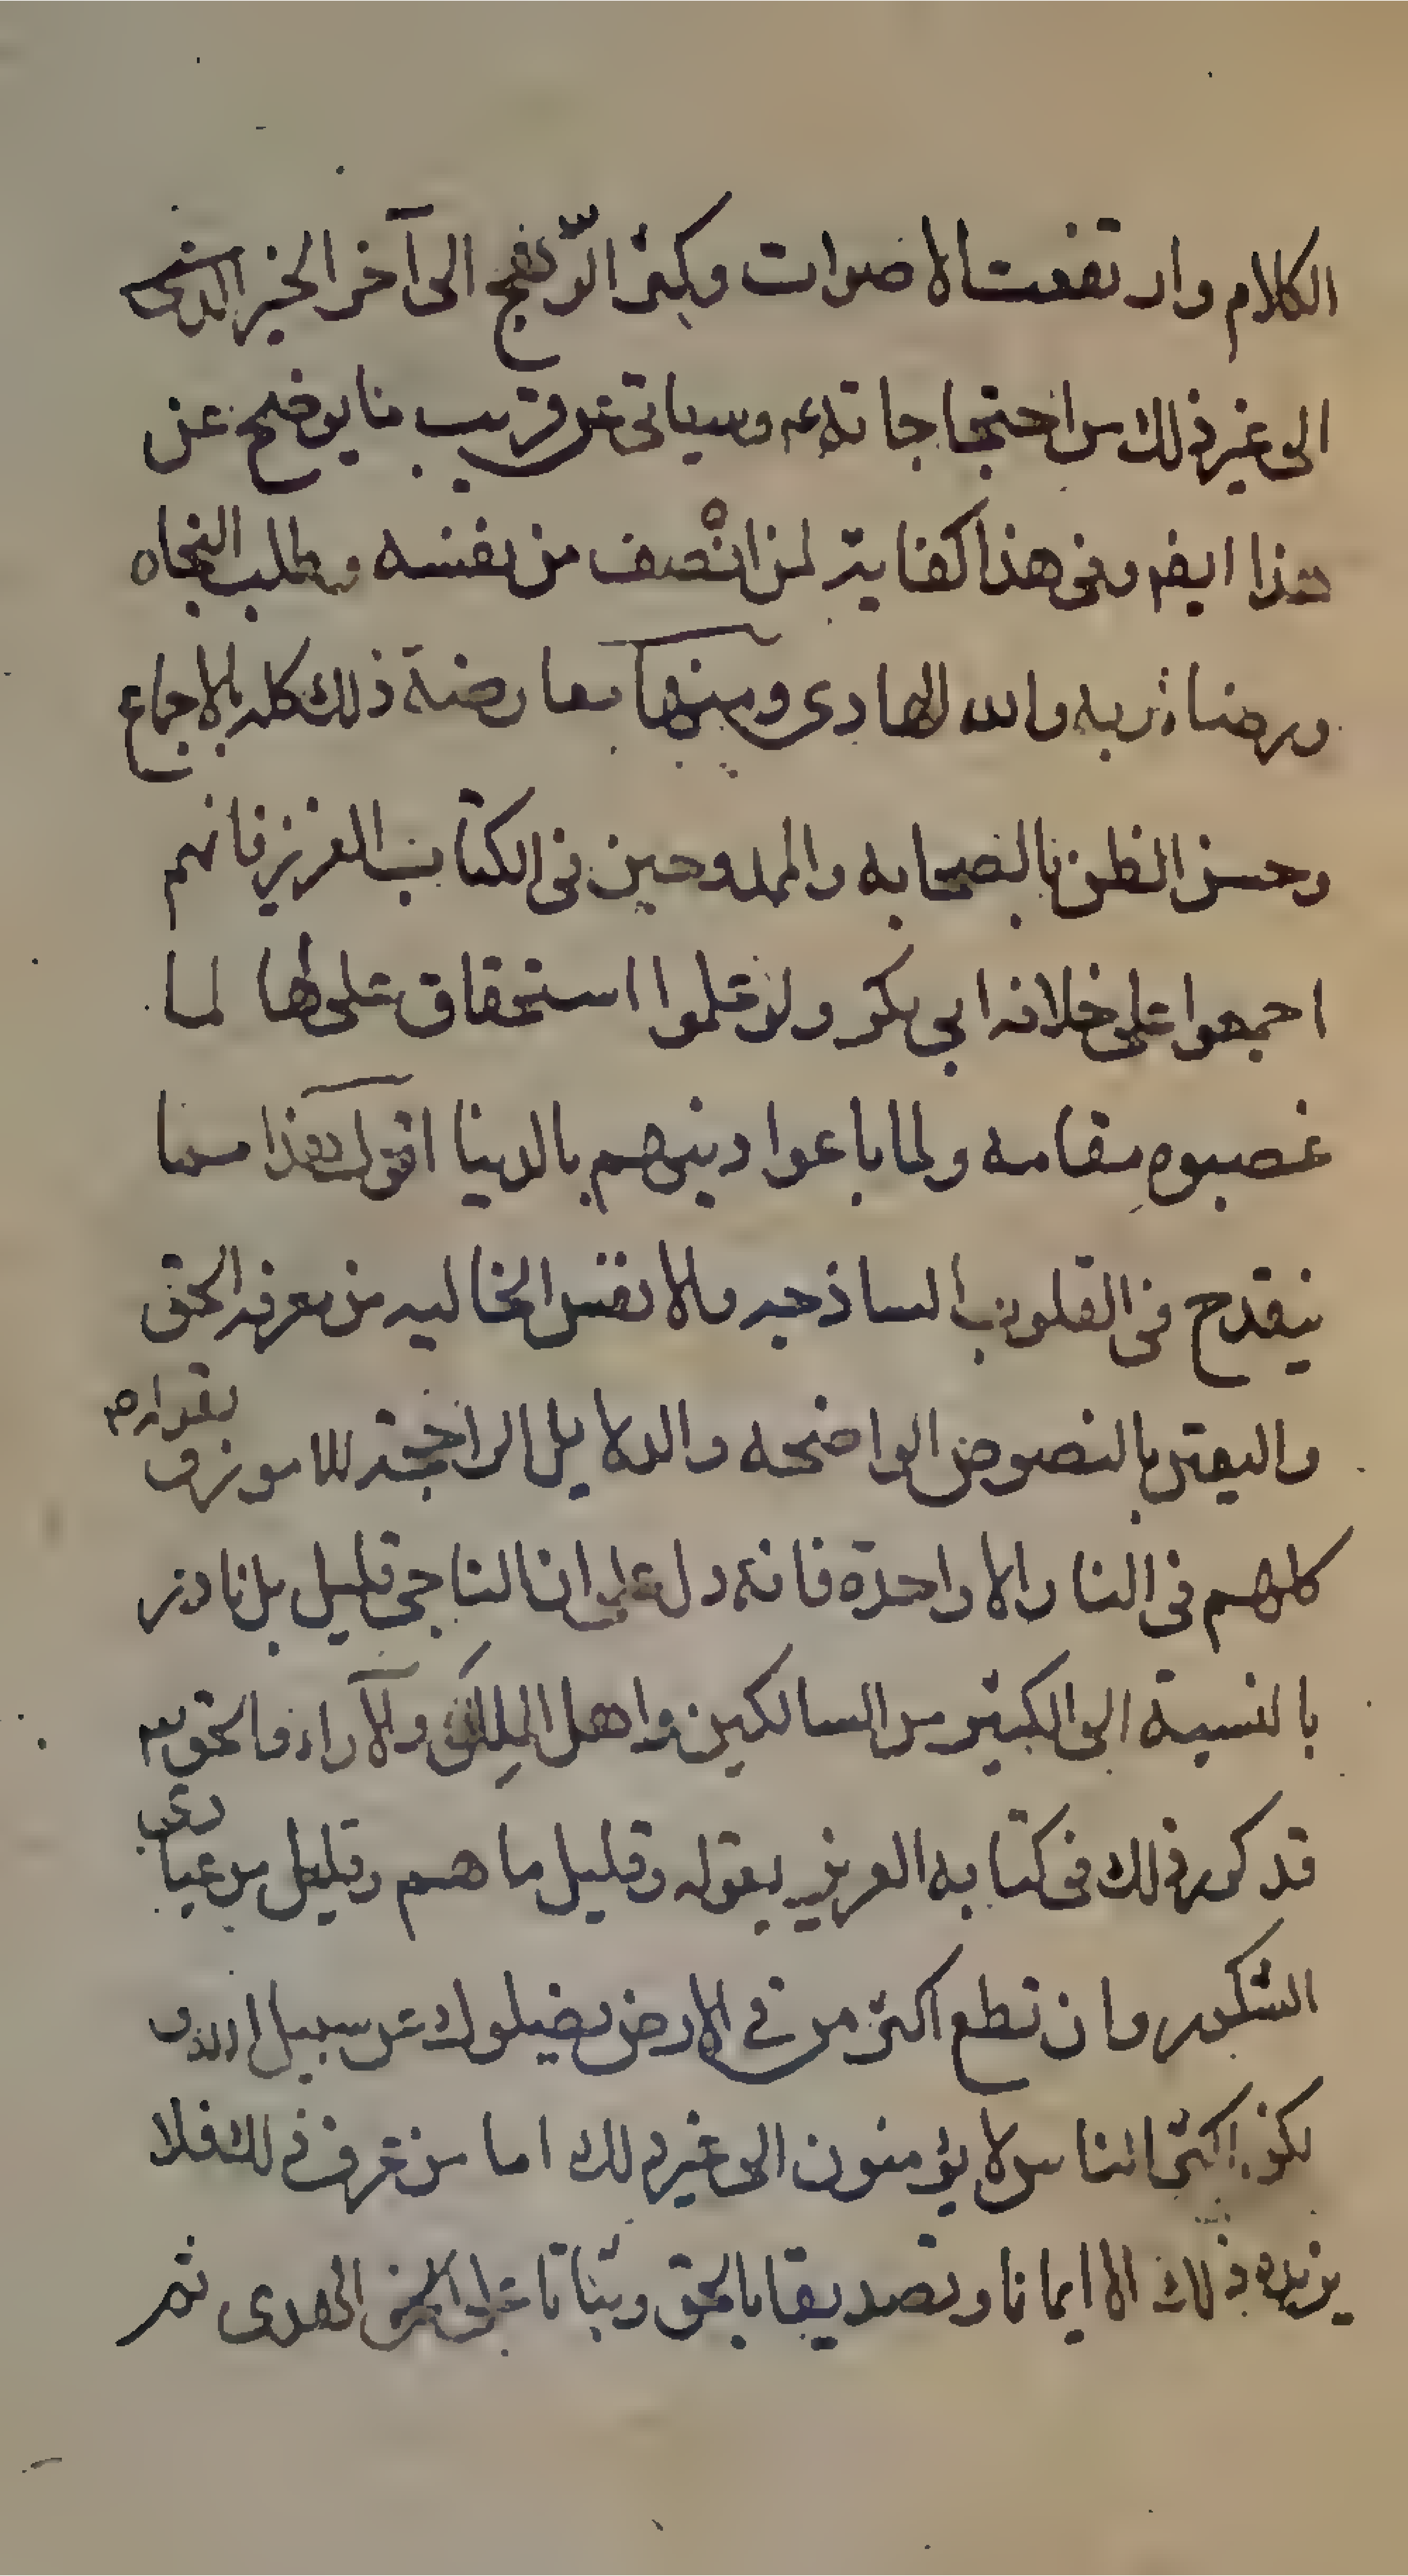 الكلام وارتفعت الاصوات وكثر الرهج الى آخر الخبر
الى غير ذلك من احتجاجاته ع وسياتى عن قريب ما يوضح عن
هذا ايض وفى هذا كفاية لمن انْصف من نفسه وطلب النجاه
ورضاء ربه والله الهادى ومنها معارضة ذلك كله بالاجماع
وحسن الظن بالصحابه والممدوحين فى الكتاب العزيز فانهم
اجمعوا على خلافه ابى بكر ولو علموا استحقاق على لها لما
غصبوه مقامه ولما باعوا دينهم بالدنيا اقول هذا مما
ينقدح فى القلوب الساذجه والانفس الخاليه من معرفه الحق
واليقين بالنصوص الواضحه والدلايل الراجحة بقوله ص
كلهم فى النار الا واحدة فانه دل على ان الناجى قليل بل نادر
بالنسبة الى الكثير من السالكين واهل الملل والآراء والحق سـ
قد كرر ذلك فى كتابه العزيز بقوله وقليل ما هم وقليل من عبادى
الشكور وان تطع اكثر من فى الارض يضلوك عن سبيل الله و
لكن اكثر الناس لا يؤمنون الى غير ذلك اما من عرف ذلك فلا
يزيده ذلك الا ايمانا وتصديقا بالحق وثباتا على الهدى ثم